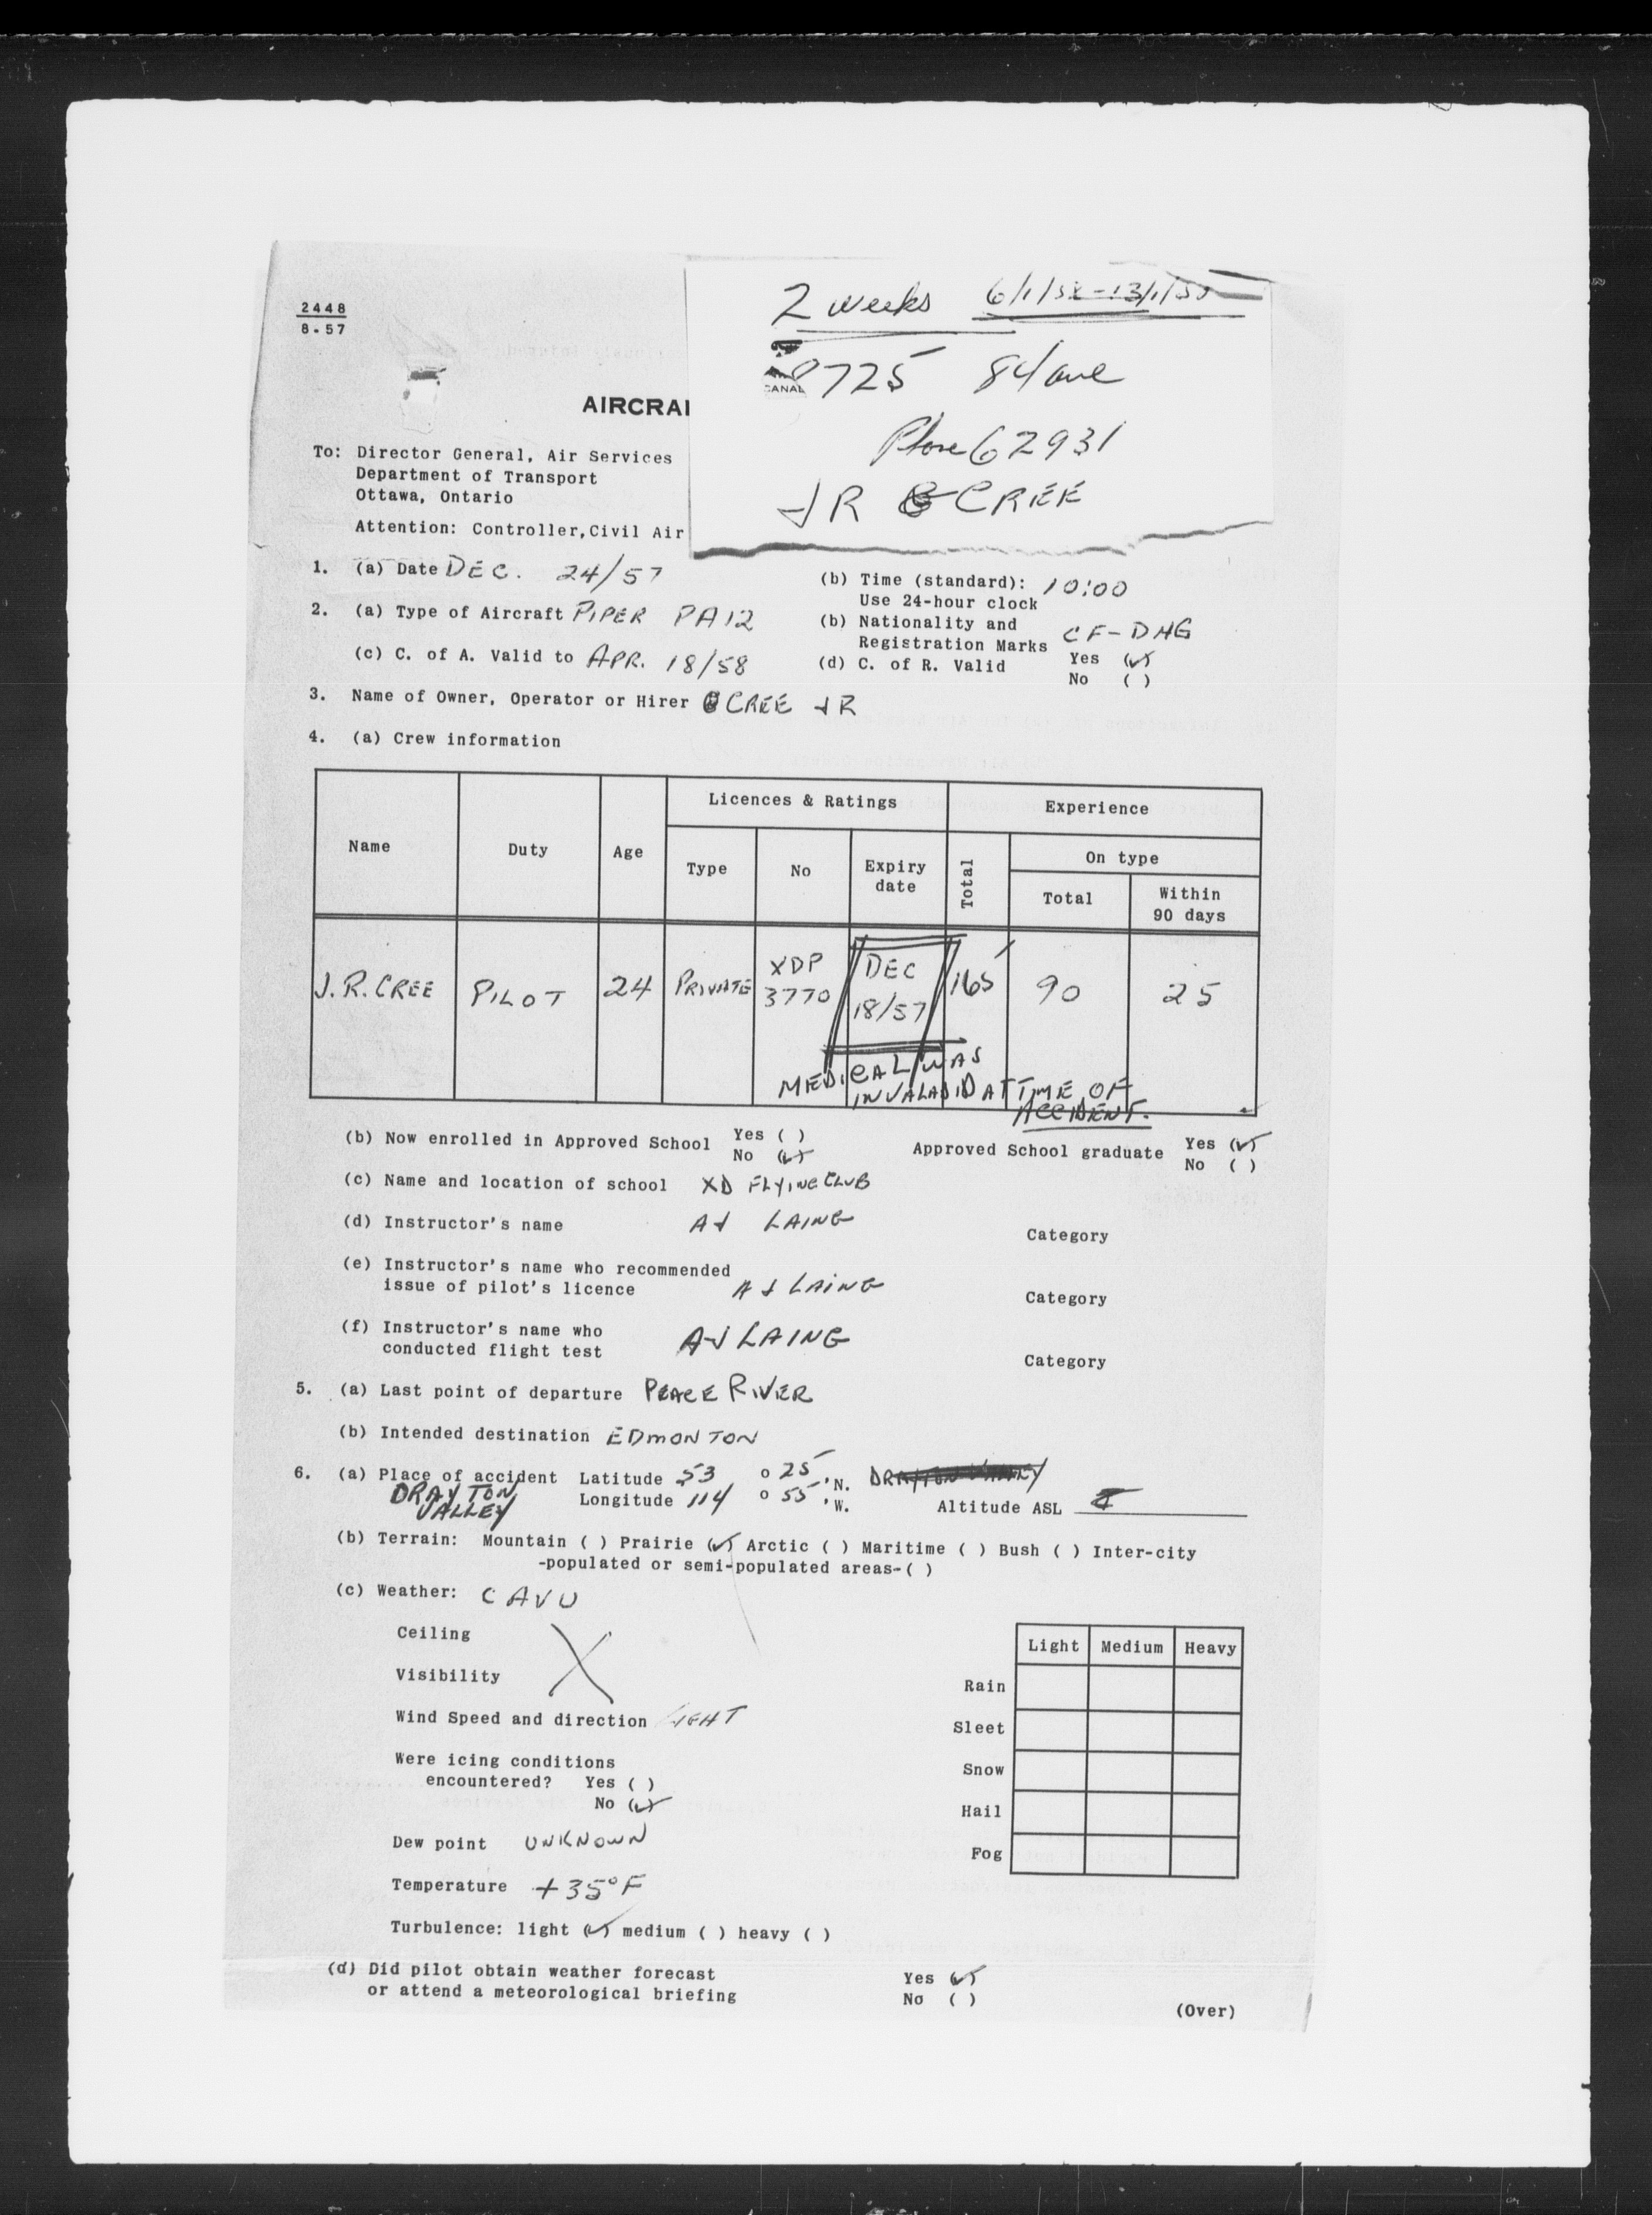 2448
8-57
2 weeks 6/1/58-13/1/58
CANAD
9725 84 ave
Phone 62931
JR CREE
AIRCRA
To: Director General, Air Services
Department of Transport
Ottawa, Ontario
Attention: Controller, Civil Air
1. (a) Date DEC. 24/57 (b) Time (standard): 10:00
Use 24-hour clock
2. (a) Type of Aircraft PIPER PA12 (b) Nationality and
Registration Marks CF-DHG
(c) C. of A. Valid to APR. 18/58 (d) C. of R. Valid Yes (✓)
No ( )
3. Name of Owner, Operator or Hirer CREE JR
4. (a) Crew information
Licences & Ratings Experience
Name Duty Age Type No Expiry date Total On type
Total Within 90 days
J.R. CREE PILOT 24 PRIVATE XDP 3770 DEC 18/57 165 90 25
MEDICAL WAS
INVALADID AT TIME OF
ACCIDENT.
(b) Now enrolled in Approved School Yes ( ) Approved School graduate Yes (✓)
No (✓) No ( )
(c) Name and location of school XD FLYING CLUB
(d) Instructor's name AJ LAING Category
(e) Instructor's name who recommended
issue of pilot's licence AJ LAING Category
(f) Instructor's name who
conducted flight test AJ LAING Category
5. (a) Last point of departure PEACE RIVER
(b) Intended destination EDMONTON
6. (a) Place of accident Latitude 53 o 25 'N. DRAYTON VALLEY
DRAYTON VALLEY Longitude 114 o 55 'W. Altitude ASL
(b) Terrain: Mountain ( ) Prairie (✓) Arctic ( ) Maritime ( ) Bush ( ) Inter-city
-populated or semi-populated areas-( )
(c) Weather: CAVU
Ceiling
Visibility
Wind Speed and direction LIGHT
Were icing conditions
encountered? Yes ( )
No (✓)
Dew point UNKNOWN
Temperature +35°F
Turbulence: light (✓) medium ( ) heavy ( )
Light Medium Heavy
Rain
Sleet
Snow
Hail
Fog
(d) Did pilot obtain weather forecast Yes (✓)
or attend a meteorological briefing No ( )
(Over)